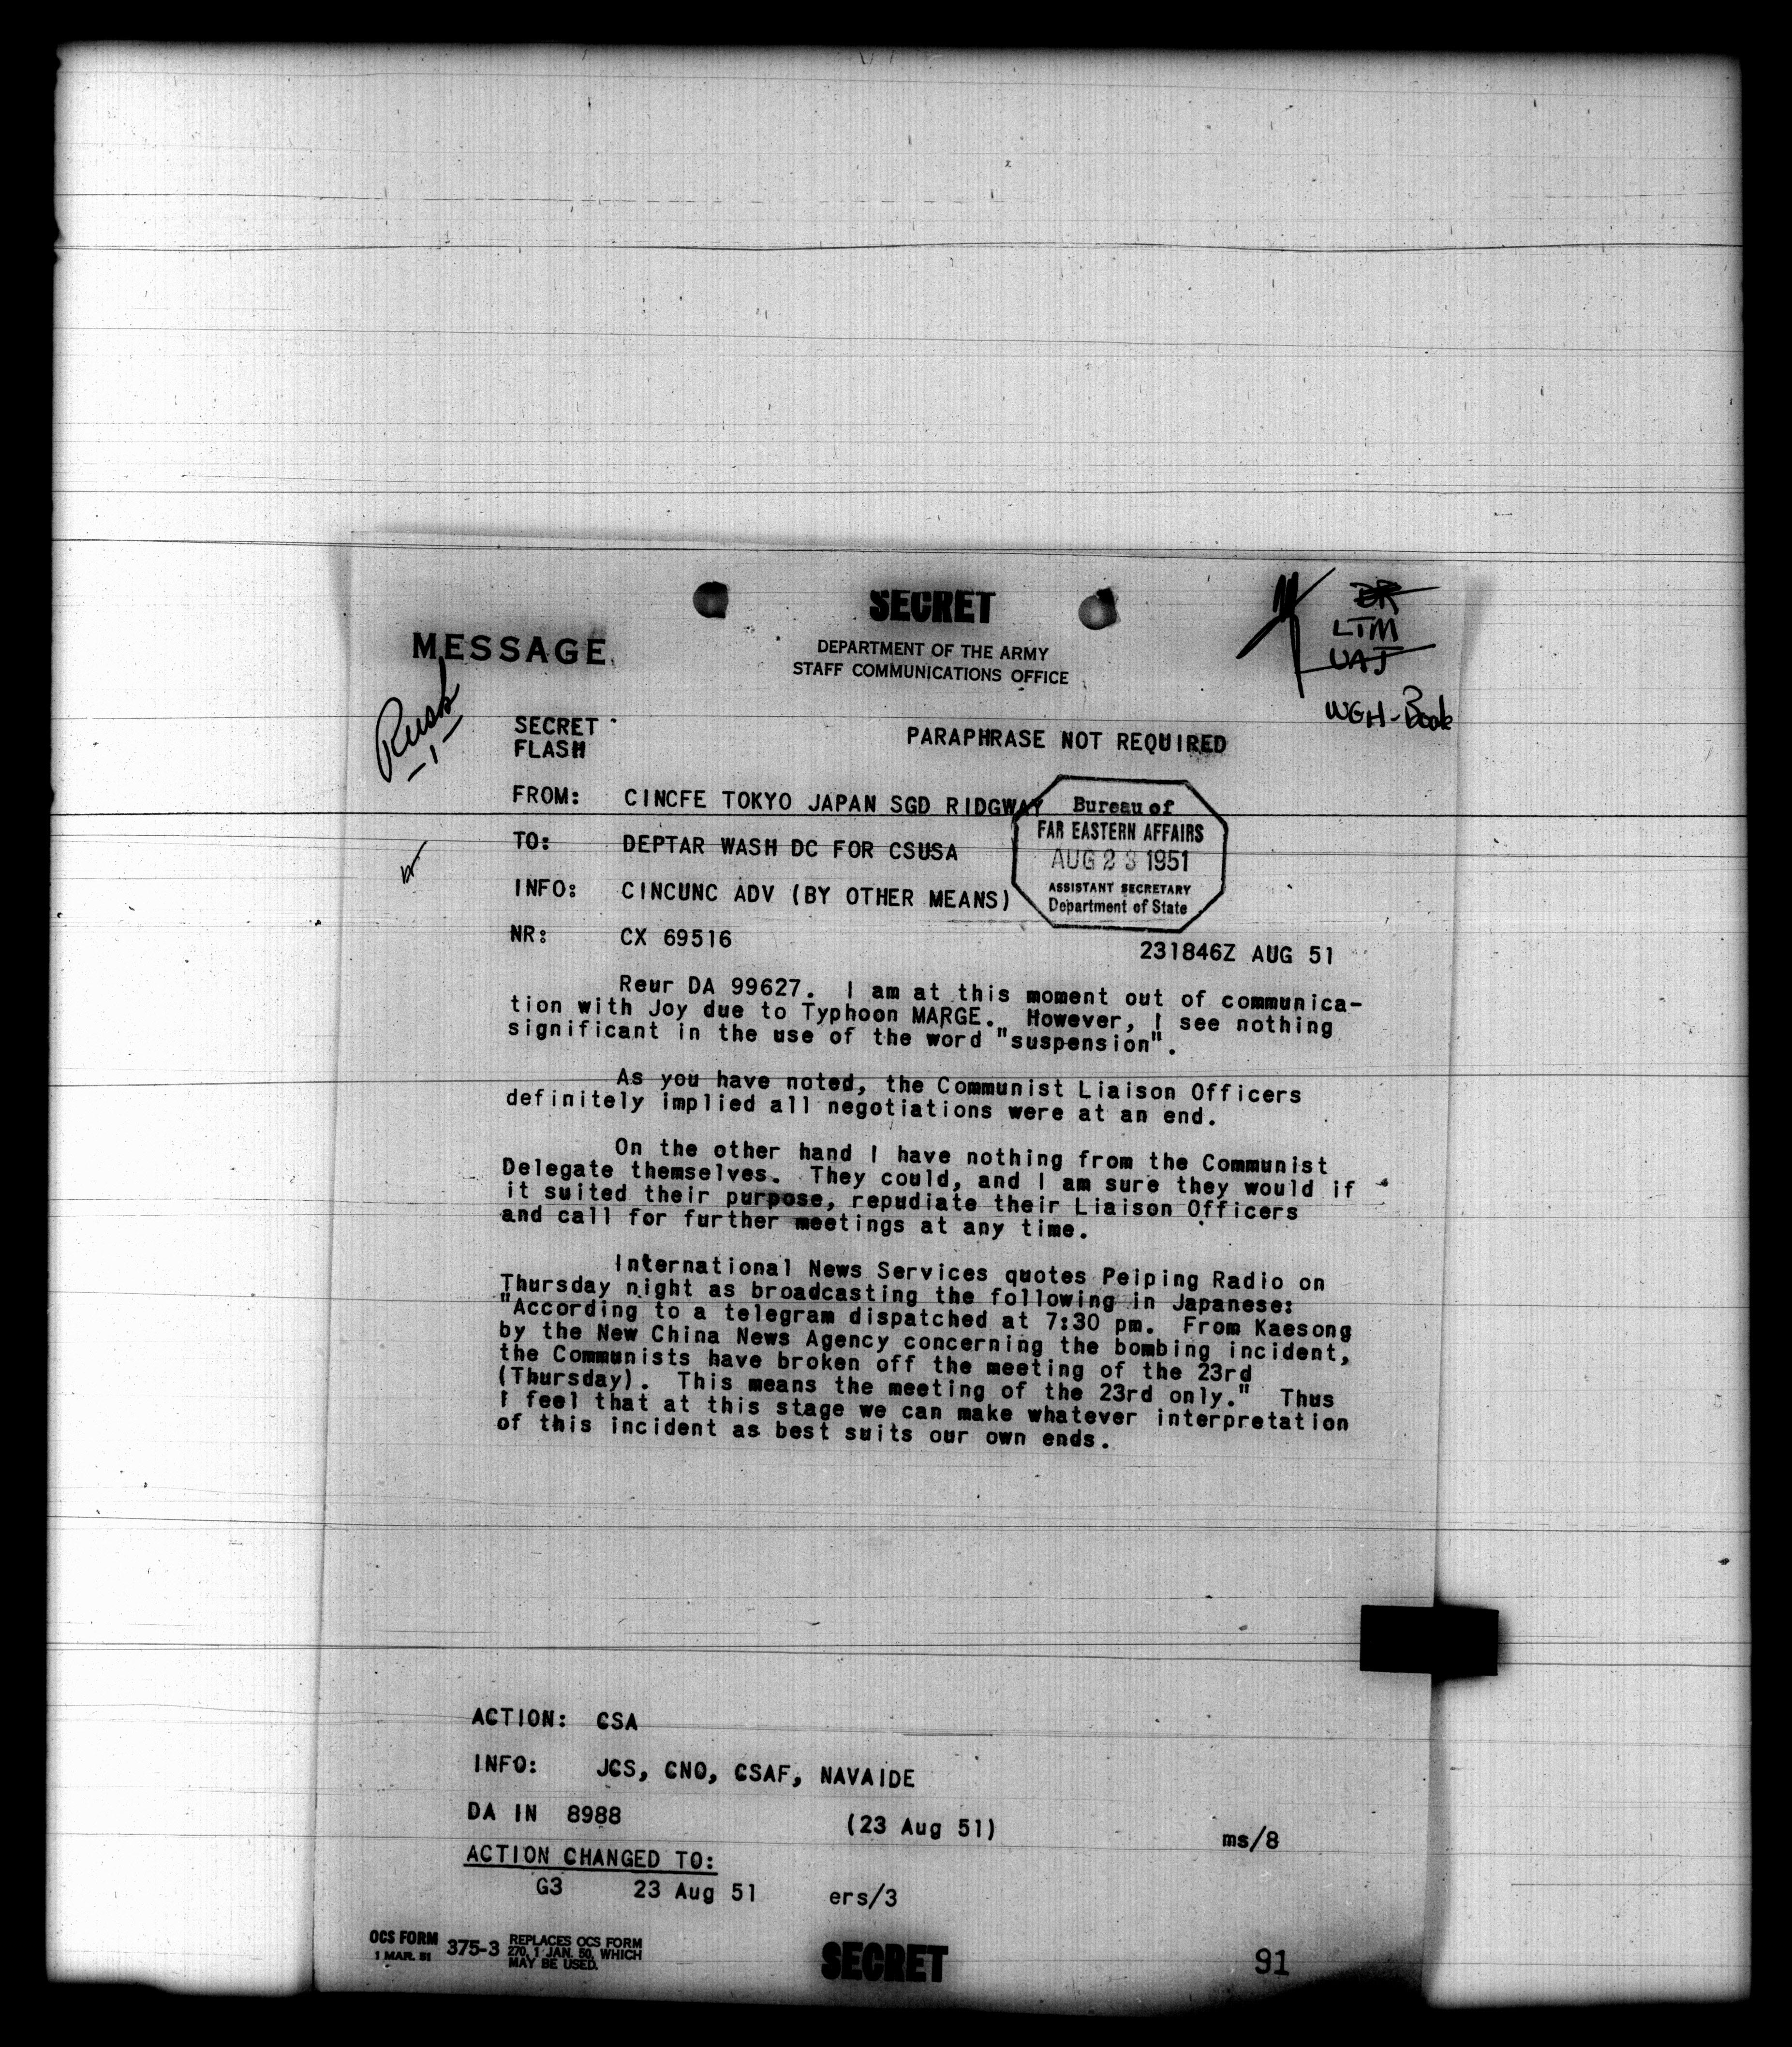 SECRET
MESSAGE
DEPARTMENT OF THE ARMY
STAFF COMMUNICATIONS OFFICE
BR
LTM
UAJ
WGH-Book
Rusk
-1-
SECRET
FLASH
PARAPHRASE NOT REQUIRED
FROM: CINCFE TOKYO JAPAN SGD RIDGWAY
TO: DEPTAR WASH DC FOR CSUSA
INFO: CINCUNC ADV (BY OTHER MEANS)
Bureau of
FAR EASTERN AFFAIRS
AUG 23 1951
ASSISTANT SECRETARY
Department of State
NR: CX 69516
231846Z AUG 51
Reur DA 99627. I am at this moment out of communica-
tion with Joy due to Typhoon MARGE. However, I see nothing
significant in the use of the word "suspension".
As you have noted, the Communist Liaison Officers
definitely implied all negotiations were at an end.
On the other hand I have nothing from the Communist
Delegate themselves. They could, and I am sure they would if
it suited their purpose, repudiate their Liaison Officers
and call for further meetings at any time.
International News Services quotes Peiping Radio on
Thursday night as broadcasting the following in Japanese:
"According to a telegram dispatched at 7:30 pm. From Kaesong
by the New China News Agency concerning the bombing incident,
the Communists have broken off the meeting of the 23rd
(Thursday). This means the meeting of the 23rd only." Thus
I feel that at this stage we can make whatever interpretation
of this incident as best suits our own ends.
ACTION: CSA
INFO: JCS, CNO, CSAF, NAVAIDE
DA IN 8988 (23 Aug 51) ms/8
ACTION CHANGED TO:
G3 23 Aug 51 ers/3
OCS FORM
1 MAR. 51
375-3
REPLACES OCS FORM
270, 1 JAN. 50, WHICH
MAY BE USED.
SECRET
91